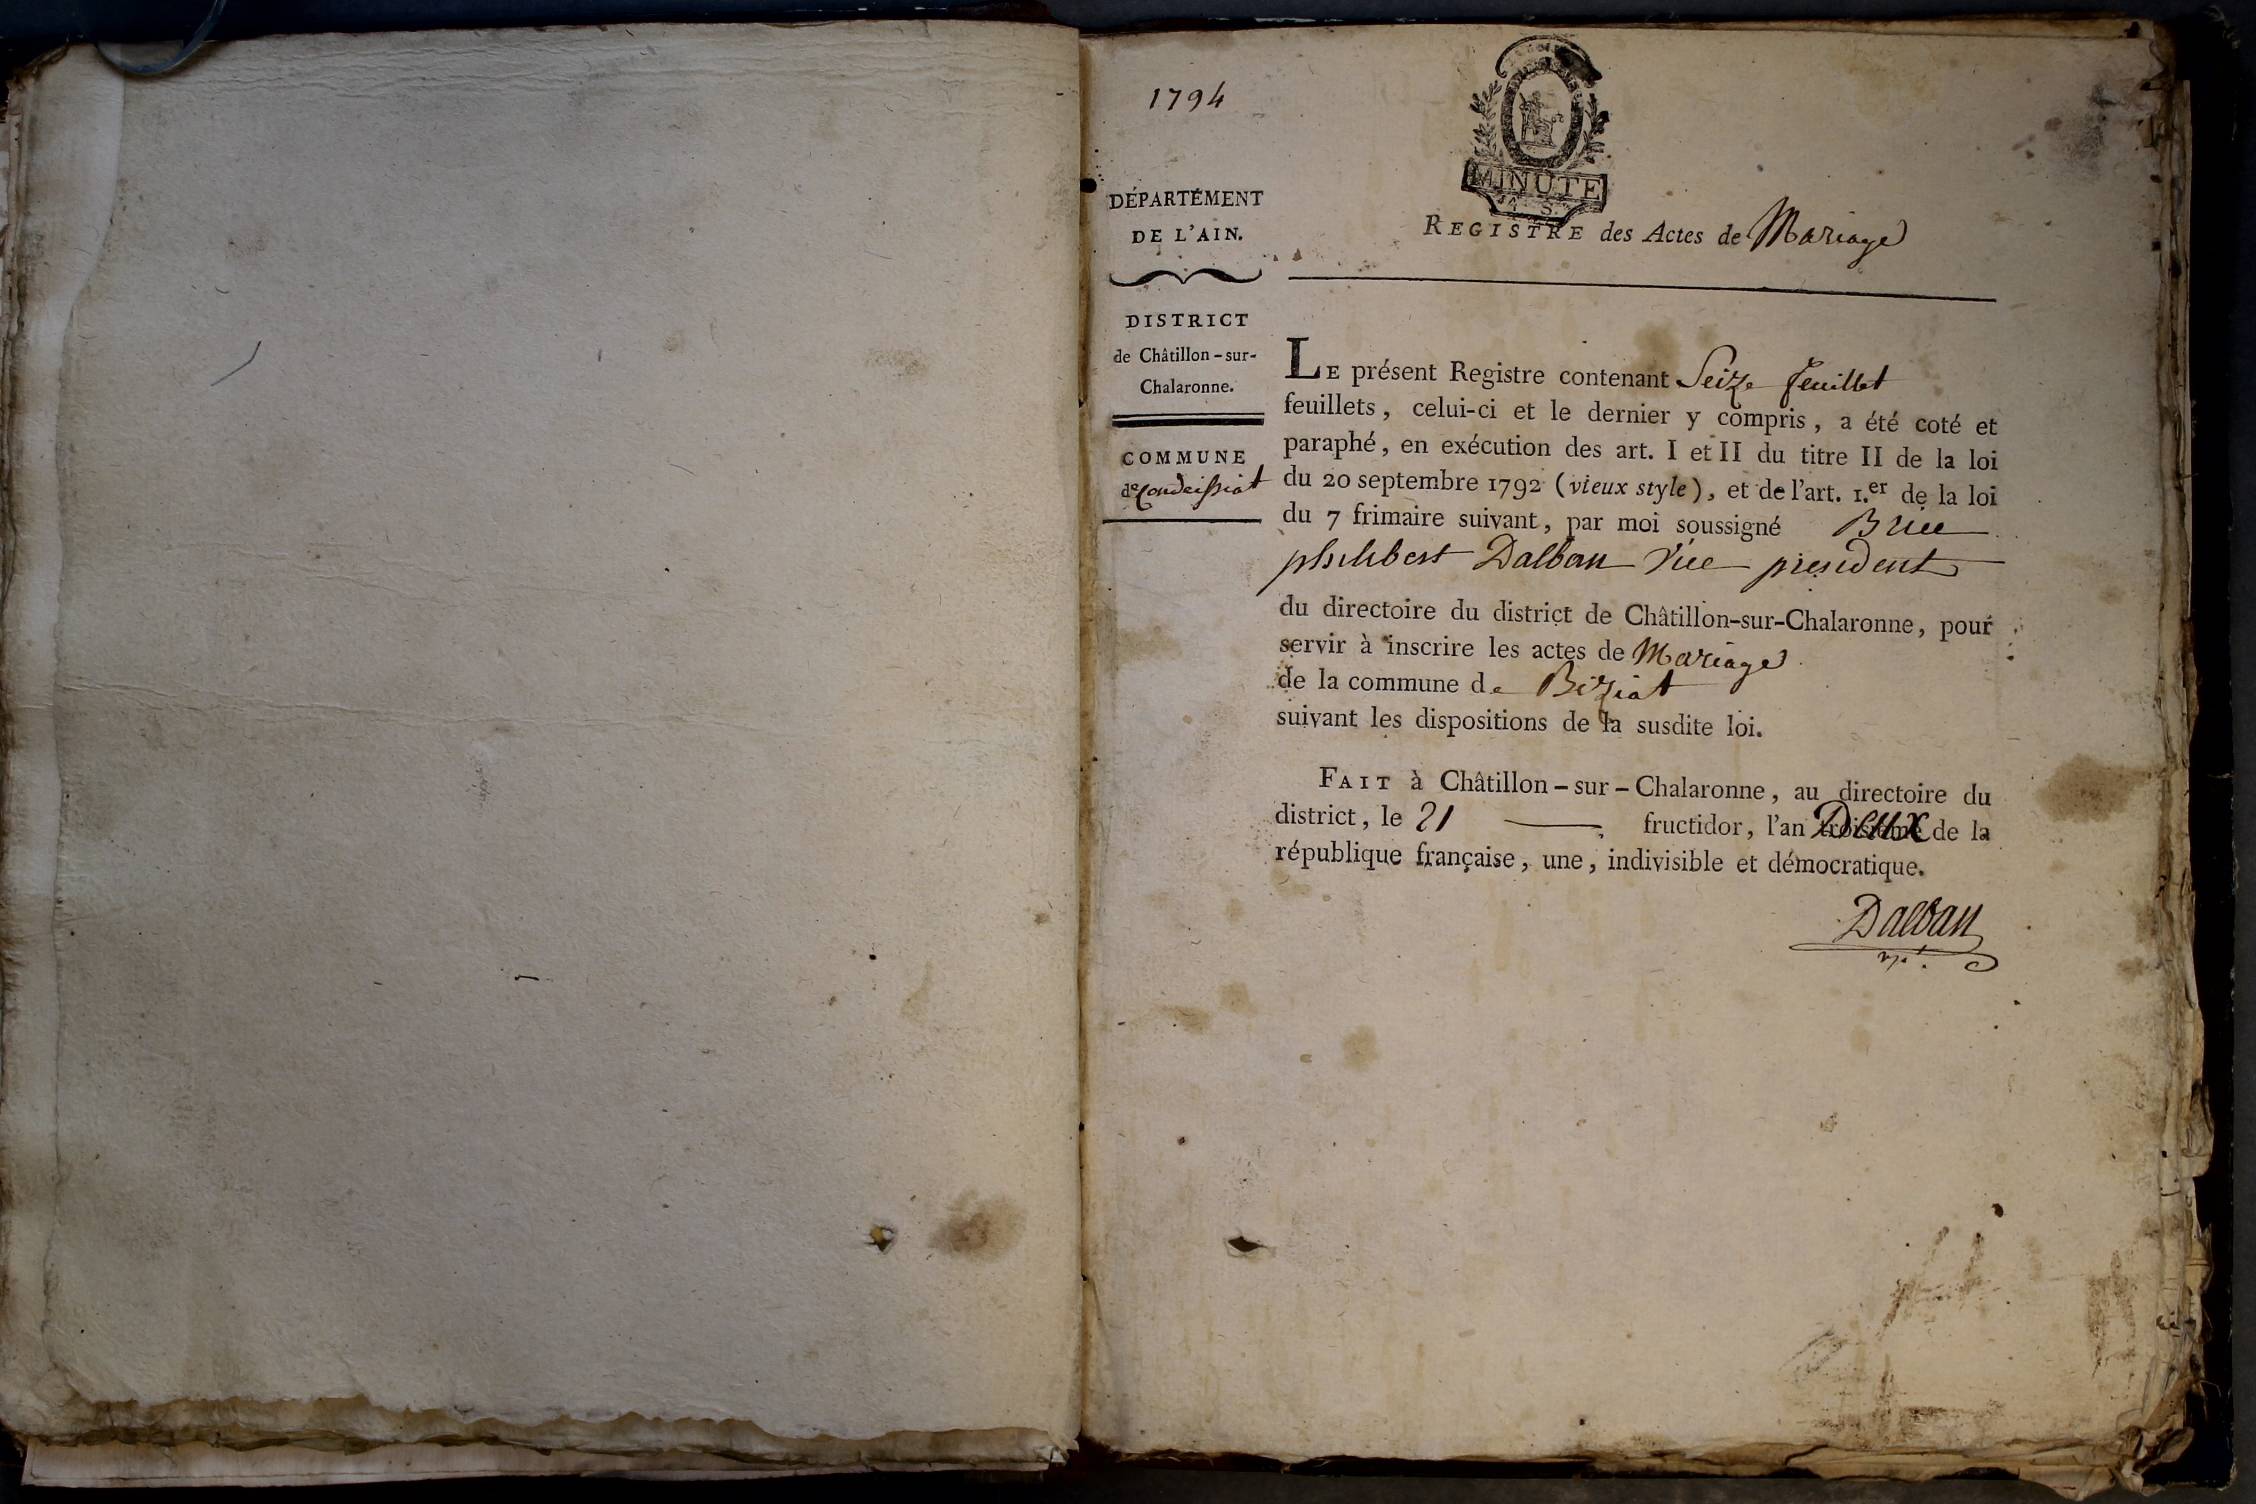 1794
MINUTE
4. S.
DÉPARTEMENT
DE L'AIN.
DISTRICT
de Châtillon-sur-
Chalaronne.
COMMUNE
de Condeissiat
REGISTRE des Actes de Mariage
LE présent Registre contenant Seize feuillet
feuillets, celui-ci et le dernier y compris, a été coté et
paraphé, en exécution des art. I et II du titre II de la loi
du 20 septembre 1792 (vieux style), et de l'art. 1.er de la loi
du 7 frimaire suivant, par moi soussigné Brice
philibert Dalban Vice president
du directoire du district de Châtillon-sur-Chalaronne, pour
servir à inscrire les actes de Mariage
de la commune de Biziat
suivant les dispositions de la susdite loi.
FAIT à Châtillon-sur-Chalaronne, au directoire du
district, le 21 fructidor, l'an Deux de la
république française, une, indivisible et démocratique.
Dalban